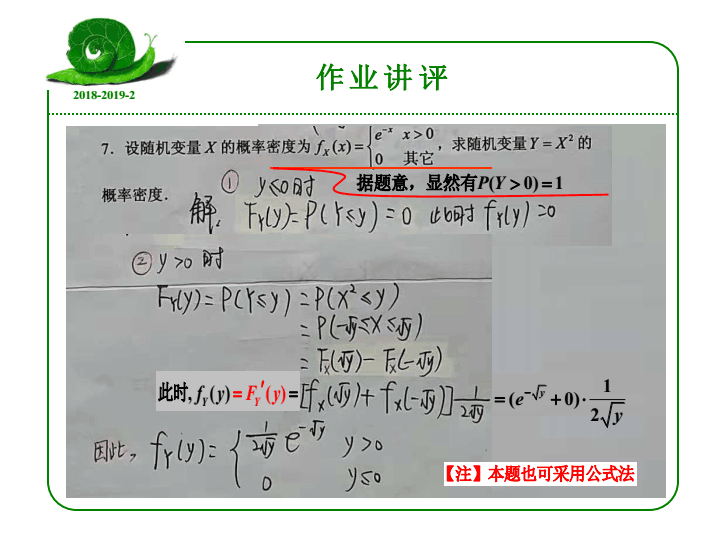 作业讲评
2018-2019-2
7. 设随机变量 X 的概率密度为 f_X(x)={e^{-x} x>0
0 其它 , 求随机变量 Y=X² 的
概率密度.
① y≤0时 据题意，显然有P(Y>0)=1
解. F_Y(y)=P(Y≤y)=0 此时 f_Y(y)=0
② y>0 时
F_Y(y)=P(Y≤y)=P(X²≤y)
=P(-√y≤X≤√y)
=F_X(√y)-F_X(-√y)
此时, f_Y(y)=F_Y'(y)=[f_X(√y)+f_X(-√y)] 1/(2√y) =(e^{-√y}+0)·1/(2√y)
因此, f_Y(y)={ 1/(2√y) e^{-√y} y>0
0 y≤0
【注】本题也可采用公式法